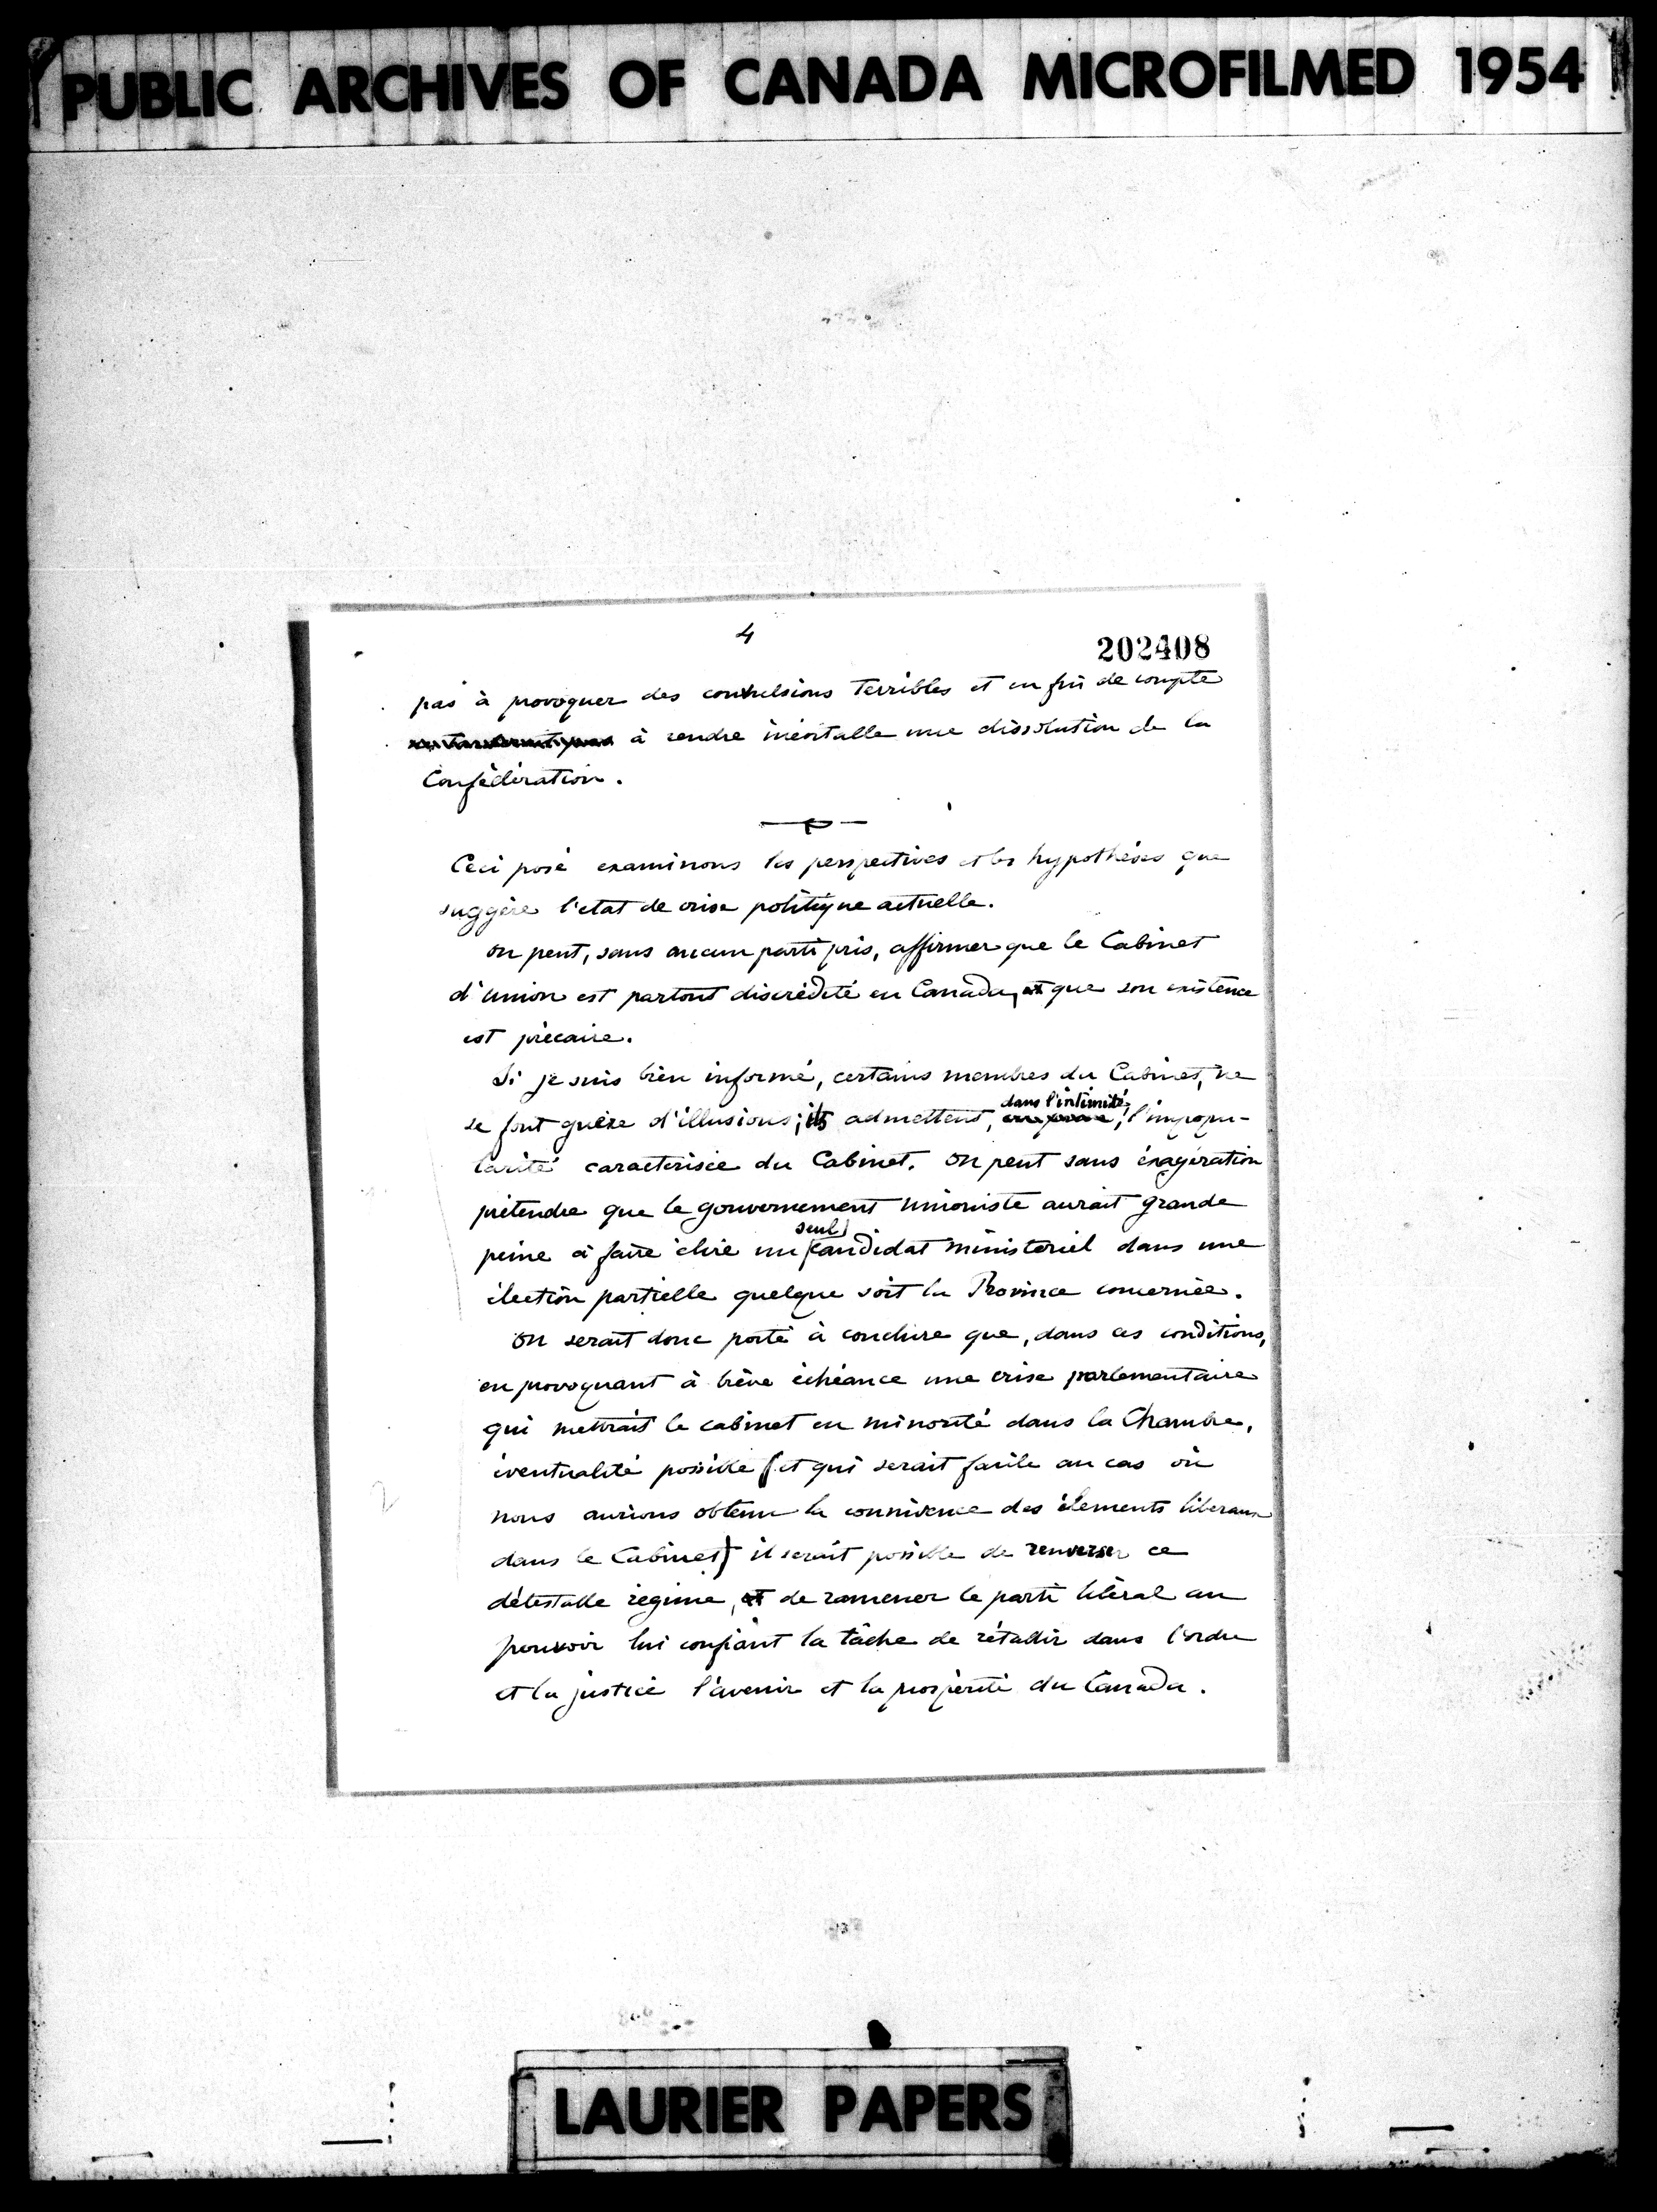 PUBLIC ARCHIVES OF CANADA MICROFILMED 1954
4
202408
pas à provoquer des convulsions terribles et en fin de compte
à rendre inévitable une dissolution de la
Confédération.
Ceci posé examinons les perspectives et les hypothèses que
suggère l'état de crise politique actuelle.
On peut, sans aucun parti pris, affirmer que le Cabinet
d'Union est partout discrédité en Canada, et que son existence
est précaire.
Si je suis bien informé, certains membres du Cabinet, ne
dans l'intimité,
se font guère d'illusions; ils admettent, l'impopu-
larité caractérisée du Cabinet. On peut sans éxagération
prétendre que le gouvernement Unioniste aurait grande
seul
peine à faire élire un candidat ministériel dans une
élection partielle quelque soit la Province concernée.
On serait donc porté à conclure que, dans ces conditions,
en provoquant à brève échéance une crise parlementaire
qui mettrait le cabinet en minorité dans la Chambre,
éventualité possible (et qui serait facile au cas où
nous aurions obtenu la connivence des éléments libéraux
dans le Cabinet) il serait possible de renverser ce
détestable régime, et de ramener le parti libéral au
pouvoir lui confiant la tâche de rétablir dans l'ordre
et la justice l'avenir et la prospérité du Canada.
LAURIER PAPERS